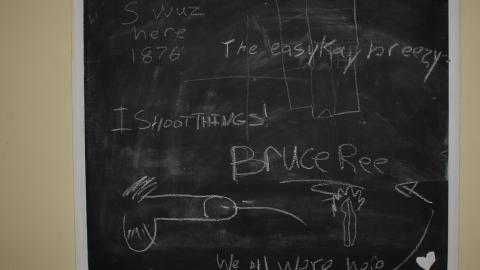 S wuz
here
1876
The easy Kay breezy
I SHOOT THINGS!
Bruce Ree
We all were here